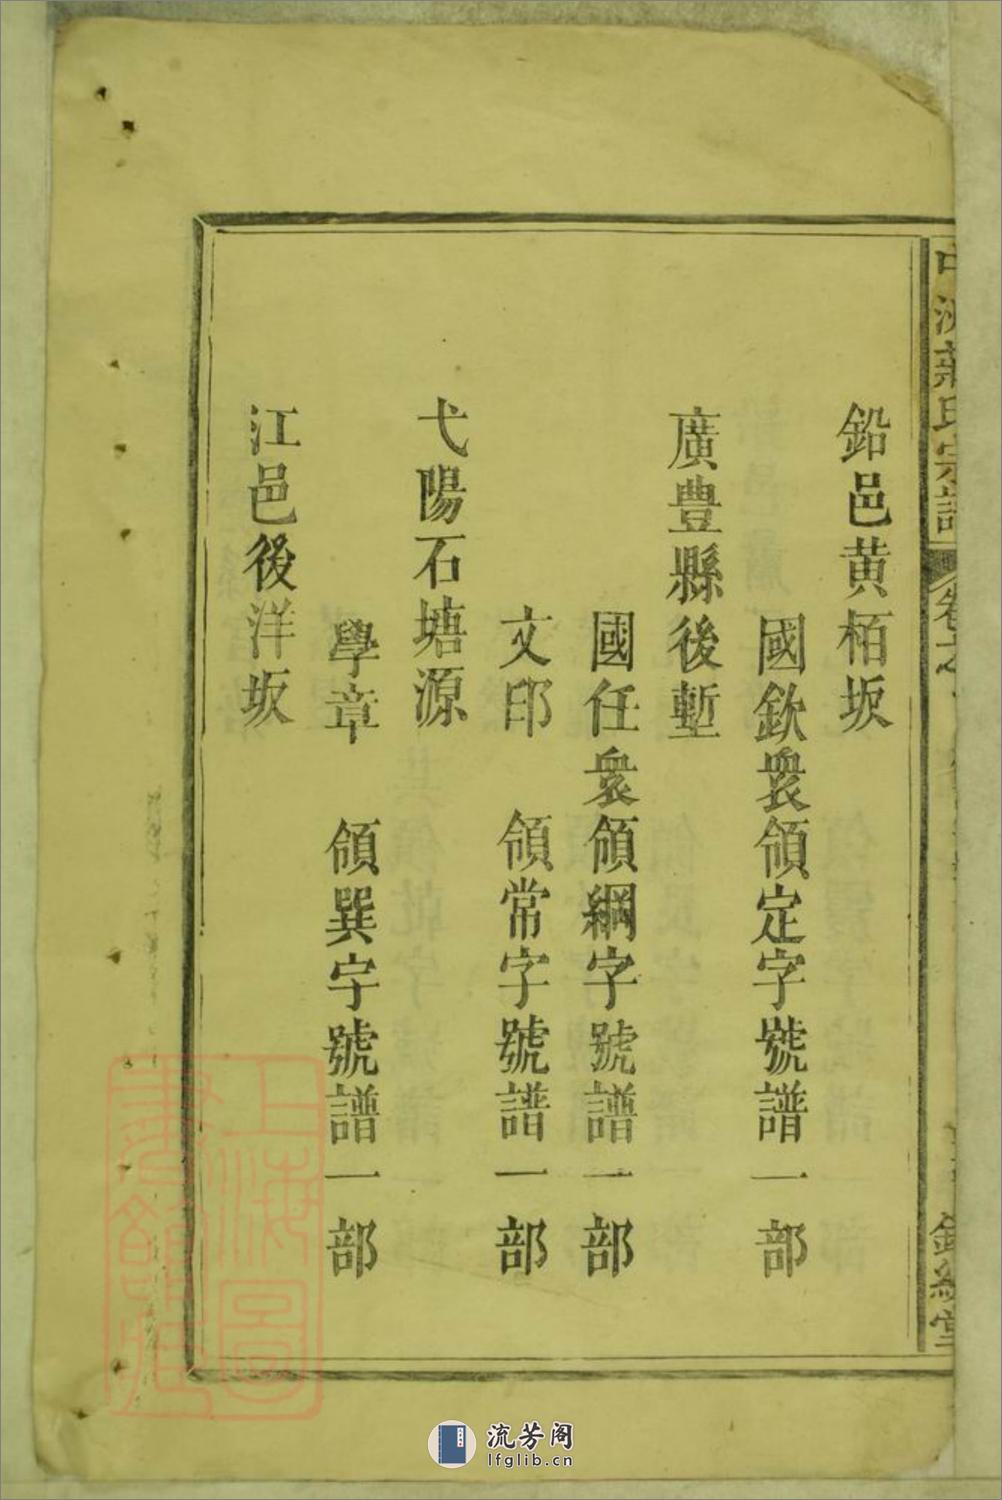 鉛邑黄栢坂
國欽衆領定字號譜一部
廣豊縣後塹
國任衆領綱字號譜一部
文印 領常字號譜一部
弋陽石塘源
學章 領巽字號譜一部
江邑後洋坂
氏宗譜
卷之
堂
上海圖書館藏
流芳阁
lfglib.cn